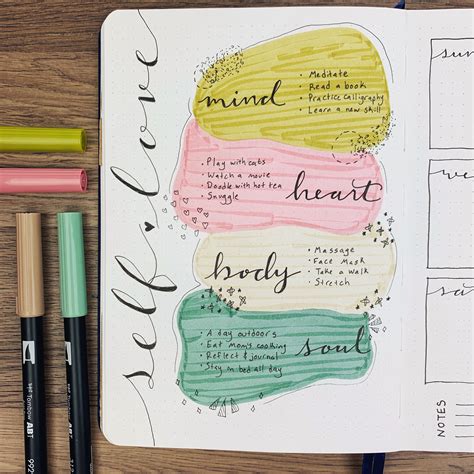 self love
mind
• Meditate
• Read a book
• Practice Calligraphy
• Learn a new skill
• Play with cats
• Watch a movie
• Doodle with hot tea
• Snuggle
heart
body
• Massage
• Face Mask
• Take a walk
• Stretch
• A day outdoors
• Eat Mom's cooking
• Reflect & journal
• Stay in bed all day
soul
SUN
WE
SA
NOTES
Tombow ABT
ABT
992